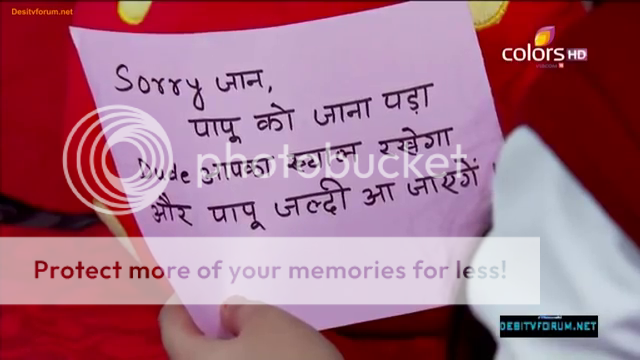 Desitvforum.net
colors HD
Sorry जान,
पापू को जाना पड़ा
Dude आपका ख्याल रखेगा
और पापू जल्दी आ जाएगें
photobucket
Protect more of your memories for less!
DESITVFORUM.NET